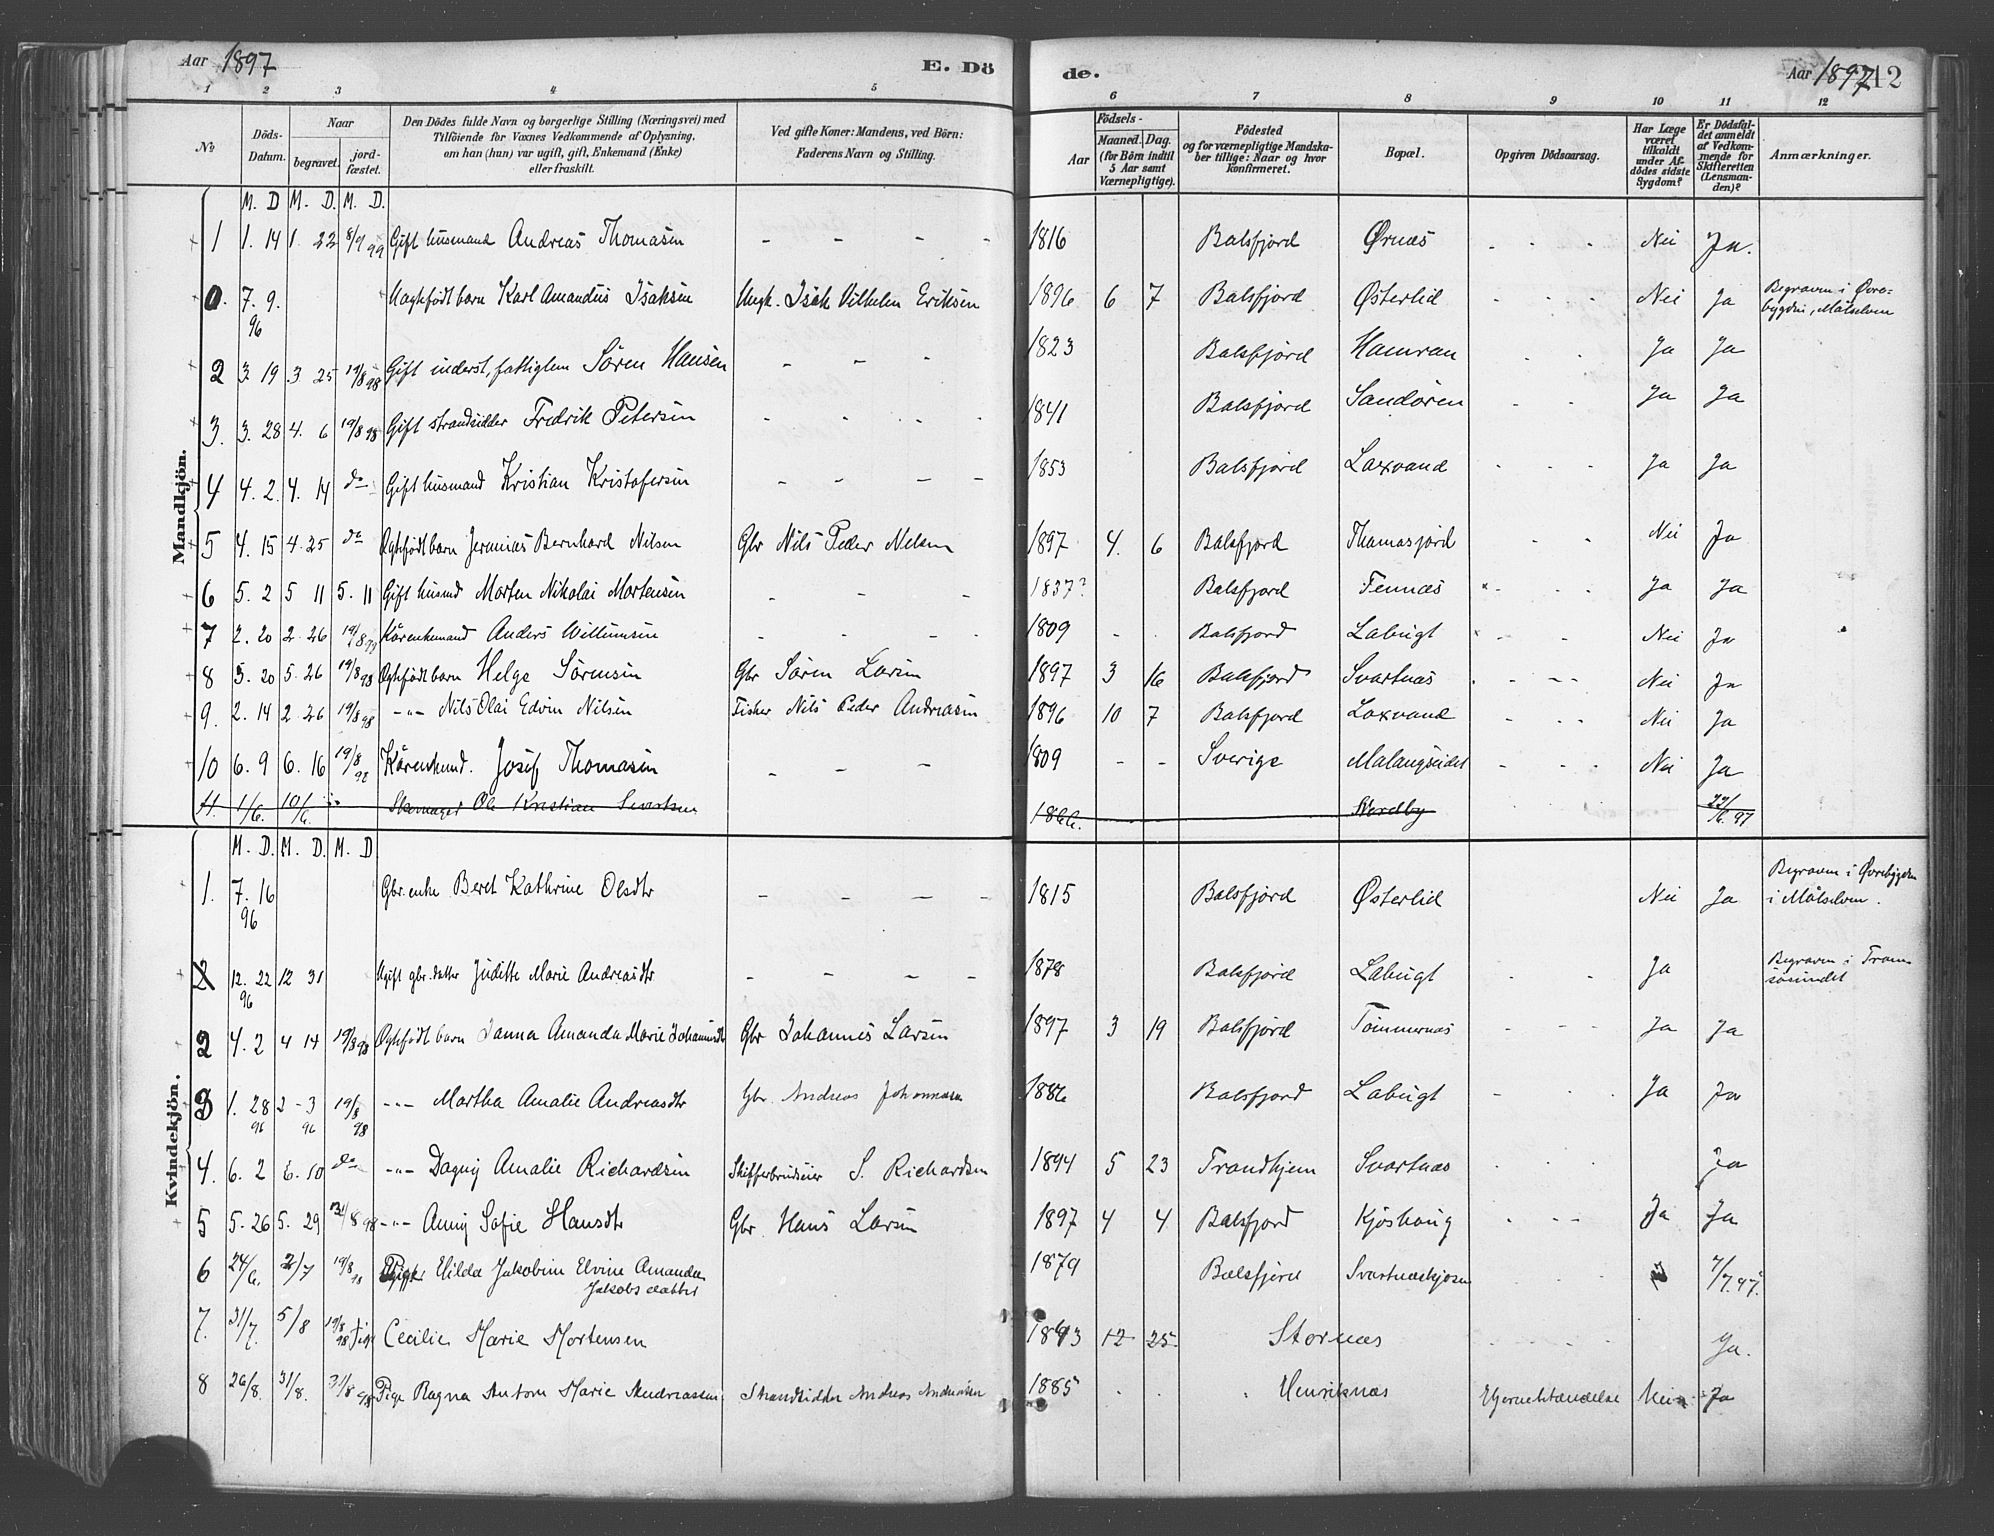 Aar 1897 E. Dö de. Aar 1897 212
1 2 3 4 5 6 7 8 9 10 11 12
No Döds-Datum. Naar begravet. jord-fæstet. Den Dödes fulde Navn og borgerlige Stilling (Næringsvei) med Tilföiende for Voxnes Vedkommende af Oplysning, om han (hun) var ugift, gift, Enkemand (Enke) eller fraskilt. Ved gifte Koner: Mandens, ved Börn: Faderens Navn og Stilling. Födsels- Aar Maaned. Dag. (for Börn indtil 5 Aar samt Værnepligtige). Födested og for værnepligtige Mandskaber tillige: Naar og hvor konfirmeret. Bopæl. Opgiven Dödsaarsag. Har Læge været tilkaldt under Afdödes sidste Sygdom? Er Dödsfaldet anmeldt af Vedkommende for Skifteretten (Lensmanden)? Anmærkninger.
Mandkjön.
M. D M. D. M. D.
1 1. 14 1. 22 Gift husmand Andreas Thomasen - - - - 1816 Balsfjord Ørnæs - - - Nei Ja.
0. 7. 9. 96 Uægtefødt barn Karl Amandus Isaksen Ungk. Isak Vilhelm Eriksen 1896 6 7 Balsfjord Østerlid - - - Nei Ja Begraven i Øvrebygden, Målselven
2 3. 19 3 25 19/8 98 Gift inderst, fattiglem Sören Hansen - - - 1823 Balsfjord Hamran - - Ja Ja
3. 3. 28 4. 6 19/8 98 Gift strandsidder Fredrik Petersen - - - - 1841 Balsfjord Sandøren - - Ja Ja
4 4. 2. 4. 14 do Gift husmand Kristian Kristofersen - - - - 1853 Balsfjord Laxvand - - - Ja Ja
5 4. 15 4. 25 do Ægtefødt barn Jeremias Bernhard Nilsen Gbr Nils Peder Nilsen 1897 4. 6 Balsfjord Thomasjord - - Nei Ja
6 5. 2 5 11 5. 11 Gift husmd Morten Nikolai Mortensen - - - 1837? Balsfjord Tennæs - - - Ja Ja
7 2. 20 2. 26 Kårenkemand Anders Willumsen - - - - 1809 - - Balsfjord Labugt - - - Nei Ja
8 5. 20 5. 26 19/8 98 Ægtefødt barn Helge Sørensen Gbr Søren Larsen 1897 3 16 Balsfjord Svartnæs - - - Nei Ja
9. 2. 14 2 26 19/8 98 -"- Nils Olai Edvin Nilsen Fisker Nils Peder Andreasen 1896 10 7 Balsfjord Laxvand - - - Nei Ja
10 6. 9 6. 16 19/8 98 Kårenkmd. Josef Thomasen - - - 1809 - - Sverige Malangseidet - - - Nei Ja
11. 1/6. 10/6. Skomager Ole Kristian Sivertsen 1866. Nordby 22/6. 97
Kvindekjön.
M. D. M. D. M. D
1. 7. 16 96 Gbr. enke Beret Kathrine Olsdtr - - - - 1815 Balsfjord Østerlid Nei Ja Begraven i Øvrebygden i Målselven.
2 12. 22 96 12 31 Ugift gbr. datter Juditte Marie Andreasdtr - - - - 1878 Balsfjord Labugt - - - Ja Begraven i Tromsøsundet
2 4. 2 4 14 19/8 98 Ægtefødt barn Janna Amanda Marie Johannesdtr Gbr Johannes Larsen 1897 3 19 Balsfjord Tømmernæs - - - Ja Ja
3 1. 28 96 2 - 3 96 19/8 98 -"- Martha Amalie Andreasdtr Gbr. Andreas Johannesen 1886 Balsfjord Labugt - - Ja Ja
4. 6. 2 6. 10 do -"- Dagny Amalie Richardsen S. Richardsen 1894 5 23 Trondhjem Svartnæs - - - Ja
5 5. 26 5. 29 -"- Anny Sofie Hansdtr Gbr. Hans Larsen 1897 4 4 Balsfjord Kjøshaug - - - Ja Ja
6 24/6. 2/7 19/8 98 Pige Hilda Jakobine Elvine Amanda Jakobsdatter 1879 Balsfjord Svartnæskjosen - - - 7/7. 97.
7. 31/7. 5/8 19/8 98 Pige Cecilie Marie Mortensen 12 25 Stornæs - - - Ja.
8 26/8. 31/8. 31/8 98 Pige Ragna Antone Marie Andreassen. Strandsidder Andreas Andreassen 1885 - - Henriknæs Hjernebetændelse Nei Ja